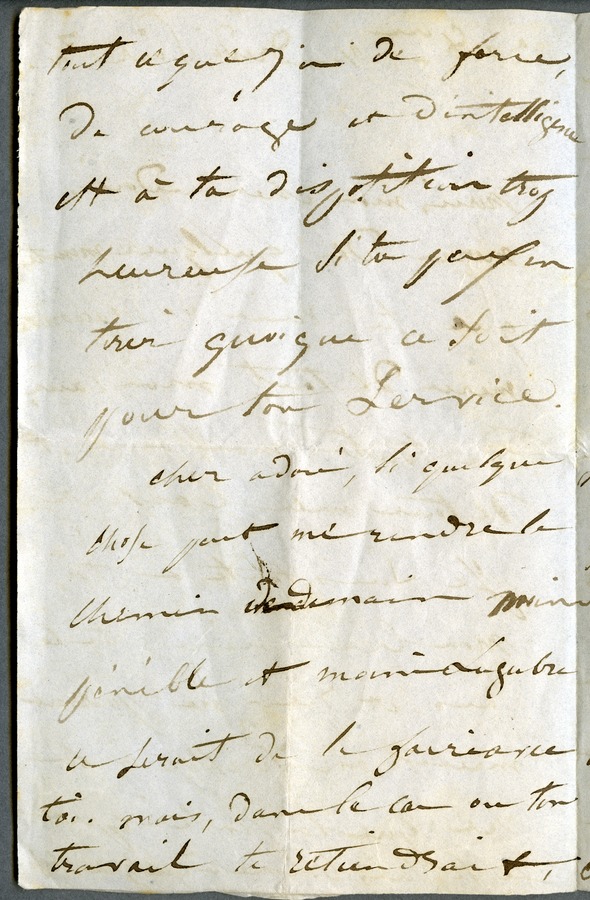 tout ce que j'ai de force,
de courage et d'intelligence
est à ta disposition trop
heureuse si tu peux en
tirer quoique ce soit
pour ton service.
cher adoré, si quelque
chose peut me rendre le
chemin de demain moins
pénible et moins lugubre
ce serait de le faire avec
toi. mais, dans le cas ou ton
travail te retiendrait,